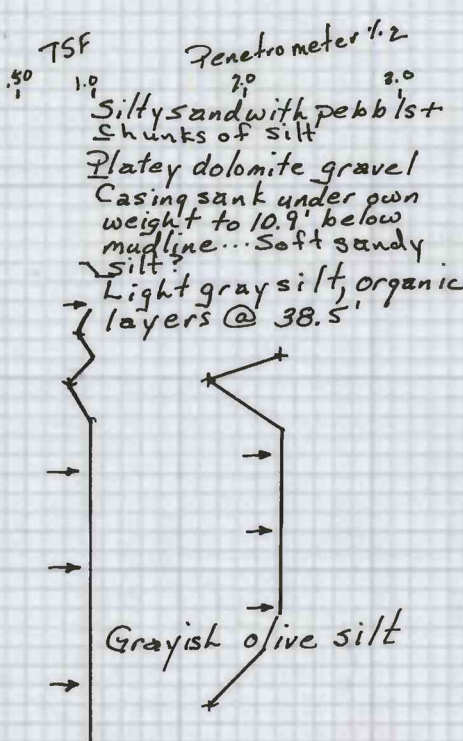 TSF Penetrometer 1.2
.50 1.0 2.0 3.0
Silty sand with pebbls +
Chunks of silt
Platey dolomite gravel
Casing sank under own
weight to 10.9' below
mudline... Soft sandy
silt?
Light gray silt, organic
layers @ 38.5'
Grayish olive silt